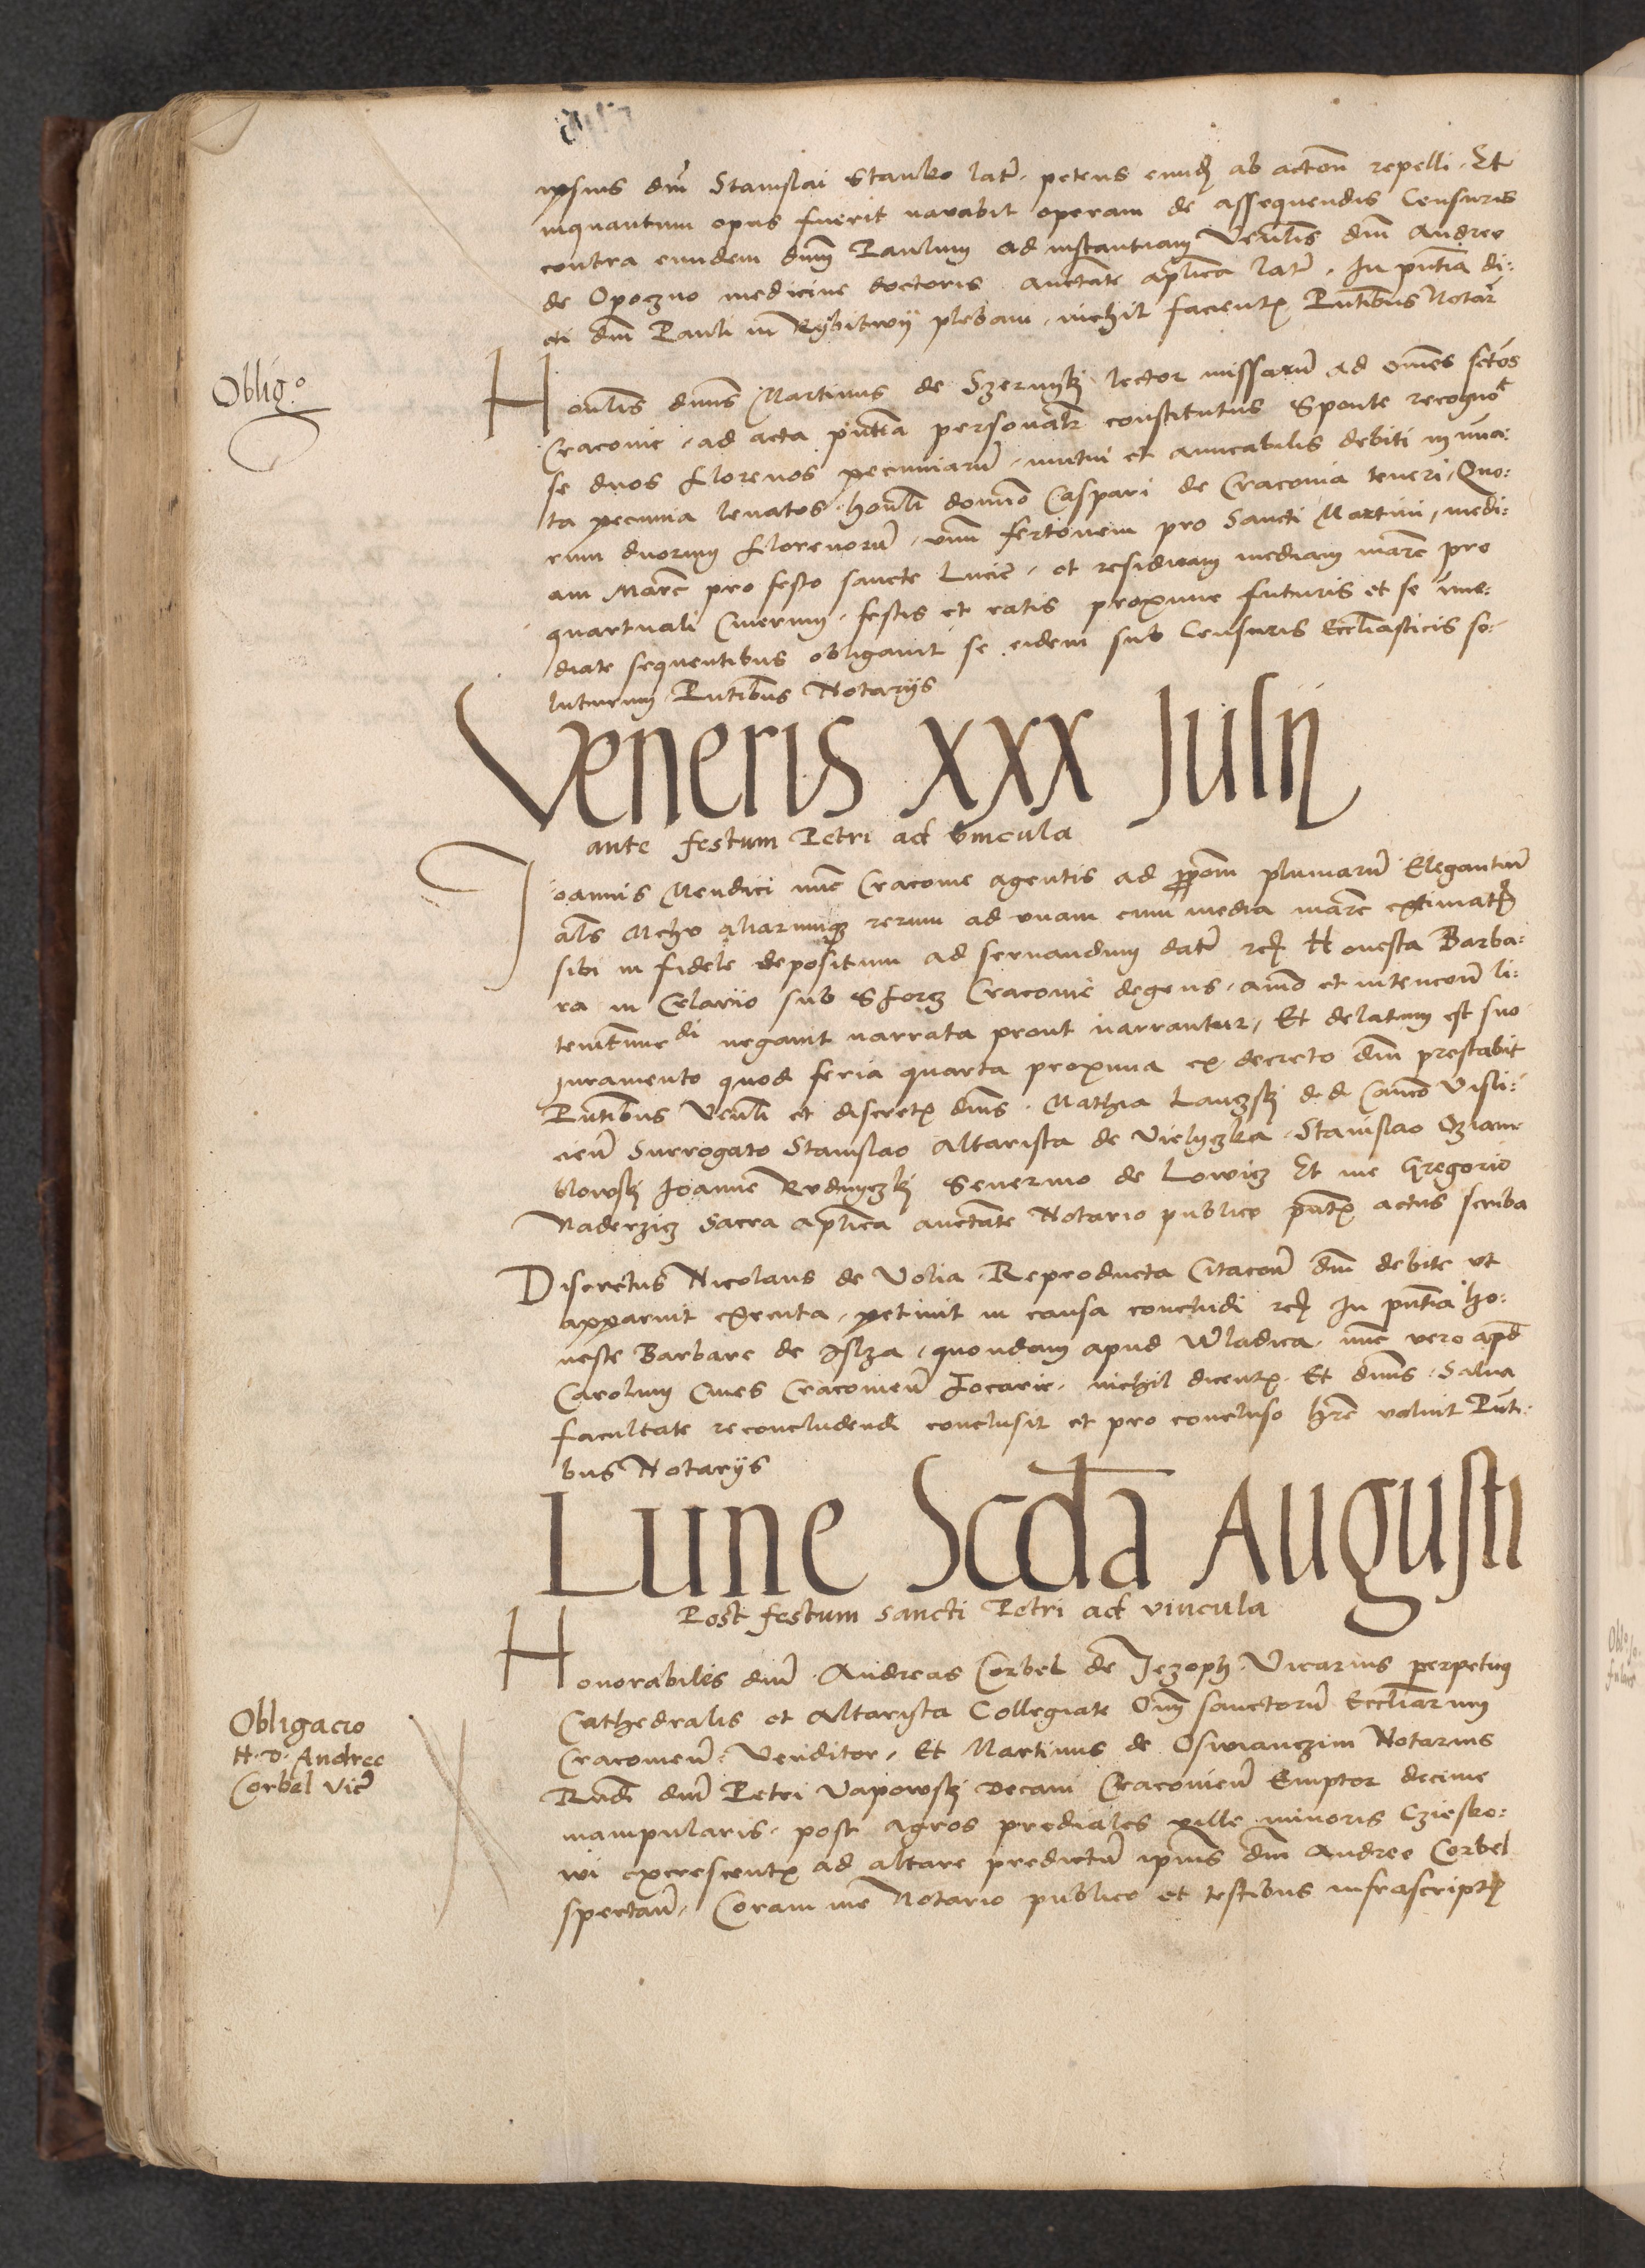 ipsius dni Stanislai Stanko late. petens eundem ab accon repelli. Et
inquantum opus fuerit navabit operam de assequendis Censuris
contra eundem dnm Paulum ad instantiam Venlis dni Andree
de Opoczno medicine doctoris auctate aplica late. In pntia di:
cti dni Pauli in Rybitwij plebani, nichil facientis Pntibus Notar
Oblig.o
Honlis dnus Martinus de Szermyk lector missaru ad omes sctos
Cracovie, ad acta pntia personalr constitutus Sponte recogno
se duos florenos pecuniaru, mutui et amicabilis debiti in nua:
ta pecunia levatos. honli domino Caspari de Cracovia teneri, Quo:
rum duorum florenoru, unu fertonem pro Sancti Martini, medi:
am Marc pro festo sancte Lucie, et residuam mediam marc pro
quartuali Cinerum, festis et ratis proxime futuris et se ime:
diate sequentibus obligavit se eidem sub Censuris Ecclesiasticis so:
luturum Pntibus Notarijs
Veneris xxx Julij
ante festum Petri ad vincula
Joannis Mendici nunc Cracovie agentis ad pposm plumaru Elegantiu
als Mchv aliarumque rerum ad unam cum media marc extimatis
sibi in fidele depositum ad servandum dater rc Honesta Barba:
ra in Celario sub Sforcz Cracovie degens, aimo et intencon li:
temtune di negavit narrata prout narrantur, Et delatum est suo
juramento quod feria quarta proxima ex decreto dni prestabit
Pntibus Venli et discretis dnis. Mathia Lanczski d. d. Canco Visli:
cien Surrogato Stanislao Altarista de Vielyczka. Stanislao Cziam
blowski Joanne Rudnyczki Severino de Lowicz Et me Gregorio
Naderzicz Sacra aplica auctate Notario publico pntis actus scriba
Discretus Nicolaus de Volia. Reproducta Citacon dni debite ut
apparuit executa, petiuit in causa concludi rc In pntia ho:
neste Barbare de Islza, quondam apud Wladica, nunc vero apd
Carolum Cives Cracovien Focarie, nichil dicentis. Et dnus. Salva
facultate reconcludendi conclusit et pro concluso hre voluit Pnti:
bus Notarijs
Lune Scda Augusti
Post festum sancti Petri ad vincula
Honorabiles dni Andreas Corbel de Jezoph. Vicarius perpetuus
Obligacio
H. D. Andree
Corbel Vice
Cathedralis et Altarista Collegiate Oim sanctoru Ecclesiarum
Cracovien. Venditor, Et Martinus de Oswianczim Notarius
Rndi dni Petri Vapowski decani Cracovien Emptor decime
manipularis. post agros prediales ville minoris Cziesko:
wi excrescentis ad altare predictu ipsius dni Andree Corbel
spectan, Coram me Notario publico et testibus infrascriptis